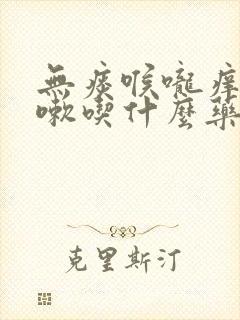 無痰喉嚨痒
嗽喫什麼藥
克里斯汀